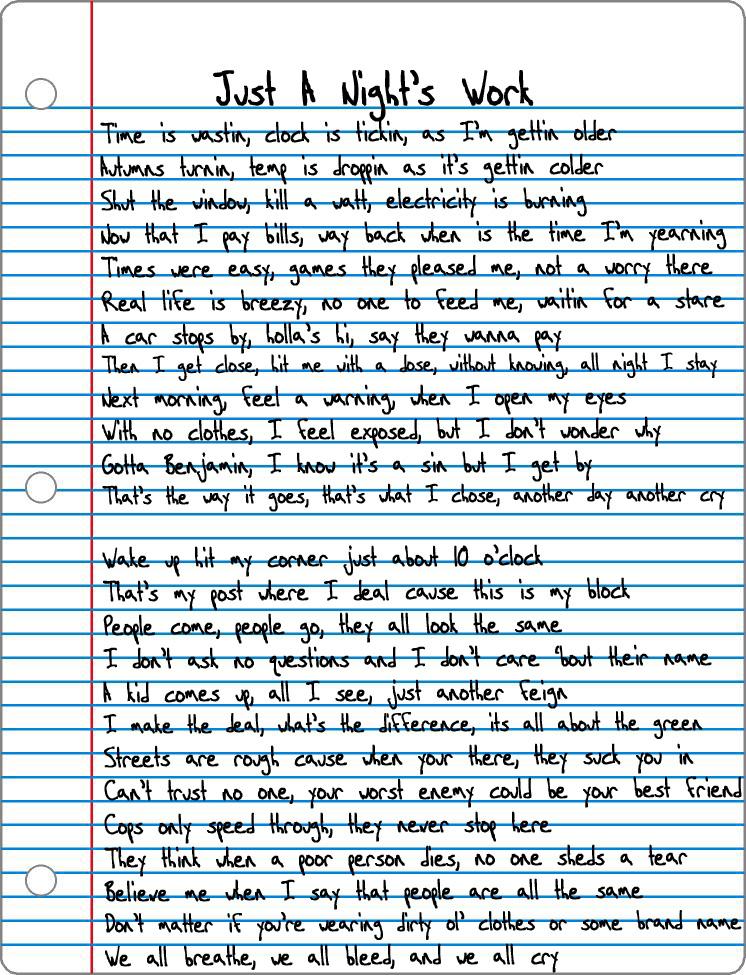 Just A Night's Work
Time is wastin, clock is tickin, as I'm gettin older
Autumns turnin, temp is droppin as it's gettin colder
Shut the window, kill a watt, electricity is burning
Now that I pay bills, way back when is the time I'm yearning
Times were easy, games they pleased me, not a worry there
Real life is breezy, no one to feed me, waitin for a stare
A car stops by, holla's hi, say they wanna pay
Then I get close, hit me with a dose, without knowing, all night I stay
Next morning, feel a warning, when I open my eyes
With no clothes, I feel exposed, but I don't wonder why
Gotta Benjamin, I know it's a sin but I get by
That's the way it goes, that's what I chose, another day another cry
Wake up hit my corner just about 10 o'clock
That's my post where I deal cause this is my block
People come, people go, they all look the same
I don't ask no questions and I don't care 'bout their name
A kid comes up, all I see, just another feign
I make the deal, what's the difference, its all about the green
Streets are rough cause when your there, they suck you in
Can't trust no one, your worst enemy could be your best friend
Cops only speed through, they never stop here
They think when a poor person dies, no one sheds a tear
Believe me when I say that people are all the same
Don't matter if you're wearing dirty ol' clothes or some brand name
We all breathe, we all bleed, and we all cry